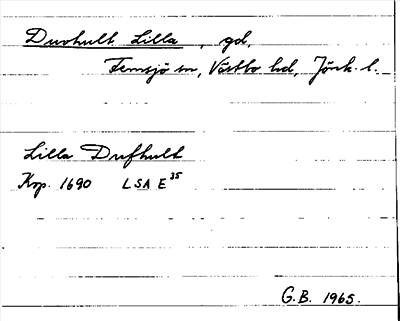 Duvhult Lilla, gd,
Femsjö sn, Västbo hd, Jönk. l.
Lilla Dufhult
Krp. 1690 LSA E 35
G.B. 1965.